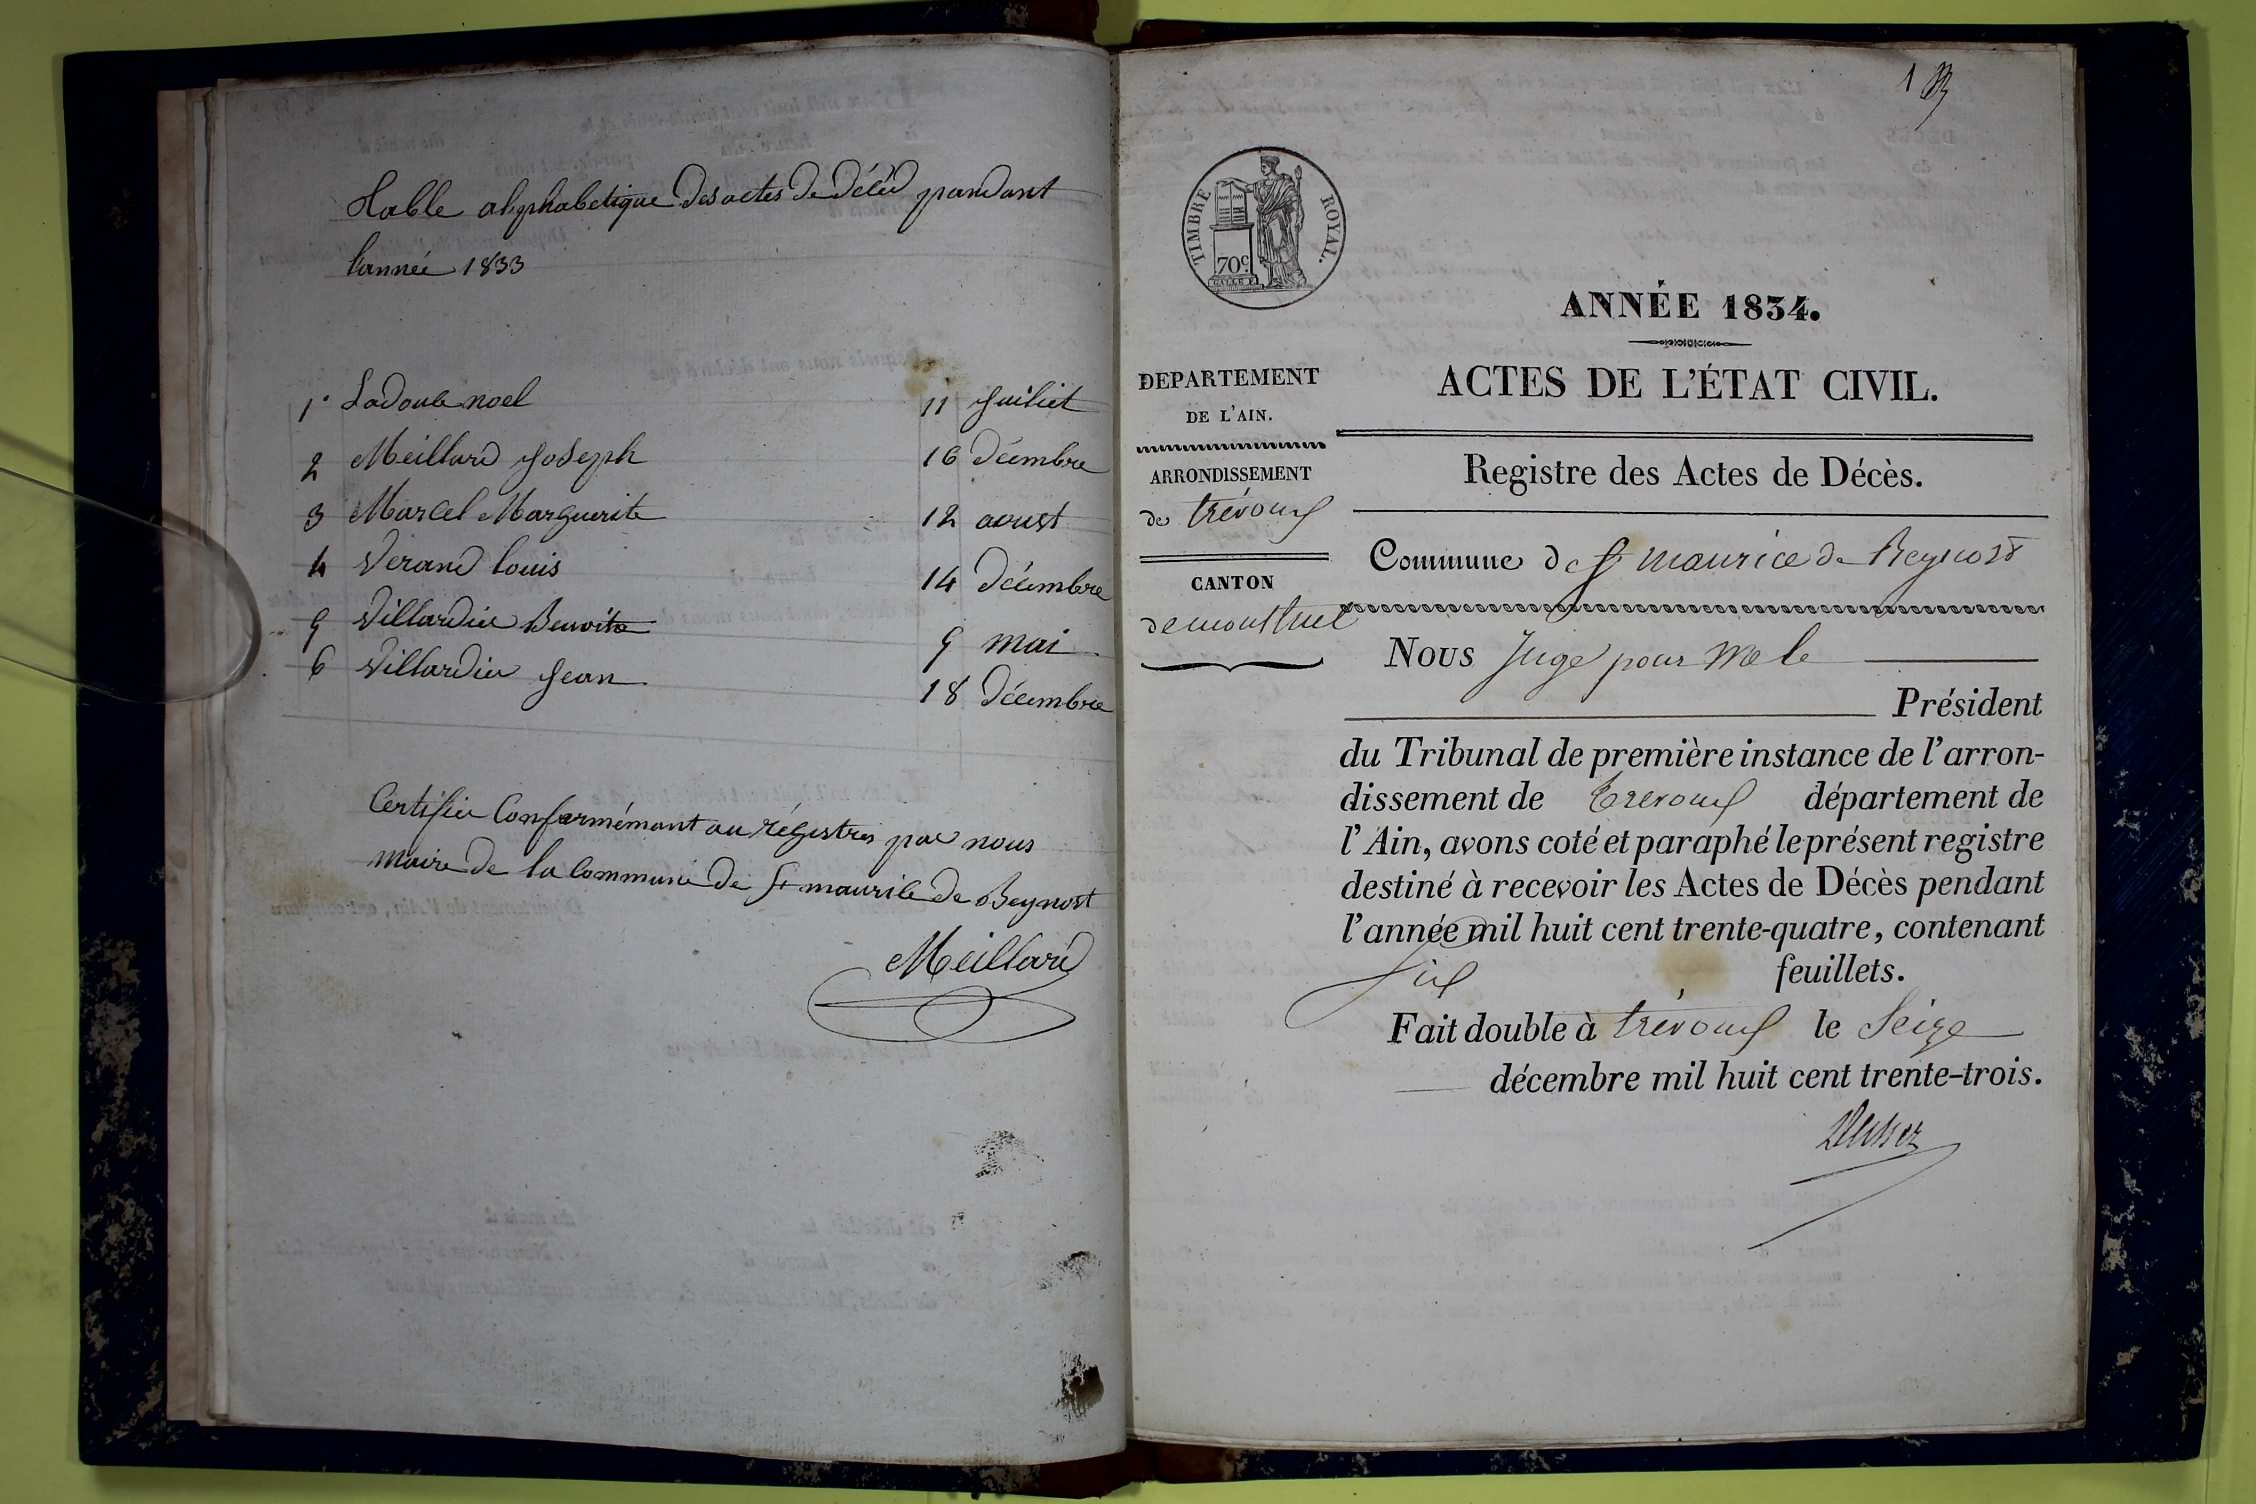 Table alphabetique des actes de décéd pandant
l'année 1833
1° Ladoue noel 11 juilict
2 Meillard joseph 16 décembre
3 Marcel Marguerite 12 aoust
4 Verand louis 14 décembre
5 Villardier Benoite 9 mai
6 Villardier jean 18 décembre
Certifier Conformémant au régistres par nous
maire de la Commune de St maurice de Beynost
Meillard
1
TIMBRE ROYAL.
70c.
ANNÉE 1834.
ACTES DE L'ÉTAT CIVIL.
Registre des Actes de Décès.
DEPARTEMENT
DE L'AIN.
ARRONDISSEMENT
de trévoux
CANTON
de montluel
Commune de St maurice de Beynost
Nous Juge pour Mr le
Président
du Tribunal de première instance de l'arron-
dissement de trevoux département de
l'Ain, avons coté et paraphé le présent registre
destiné à recevoir les Actes de Décès pendant
l'année mil huit cent trente-quatre, contenant
six feuillets.
Fait double à trévoux le Seize
décembre mil huit cent trente-trois.